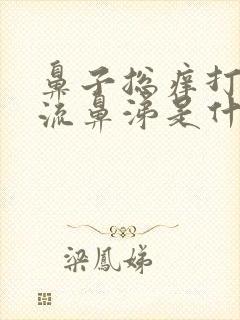 鼻子总痒打
流鼻涕是什
梁鳳娣